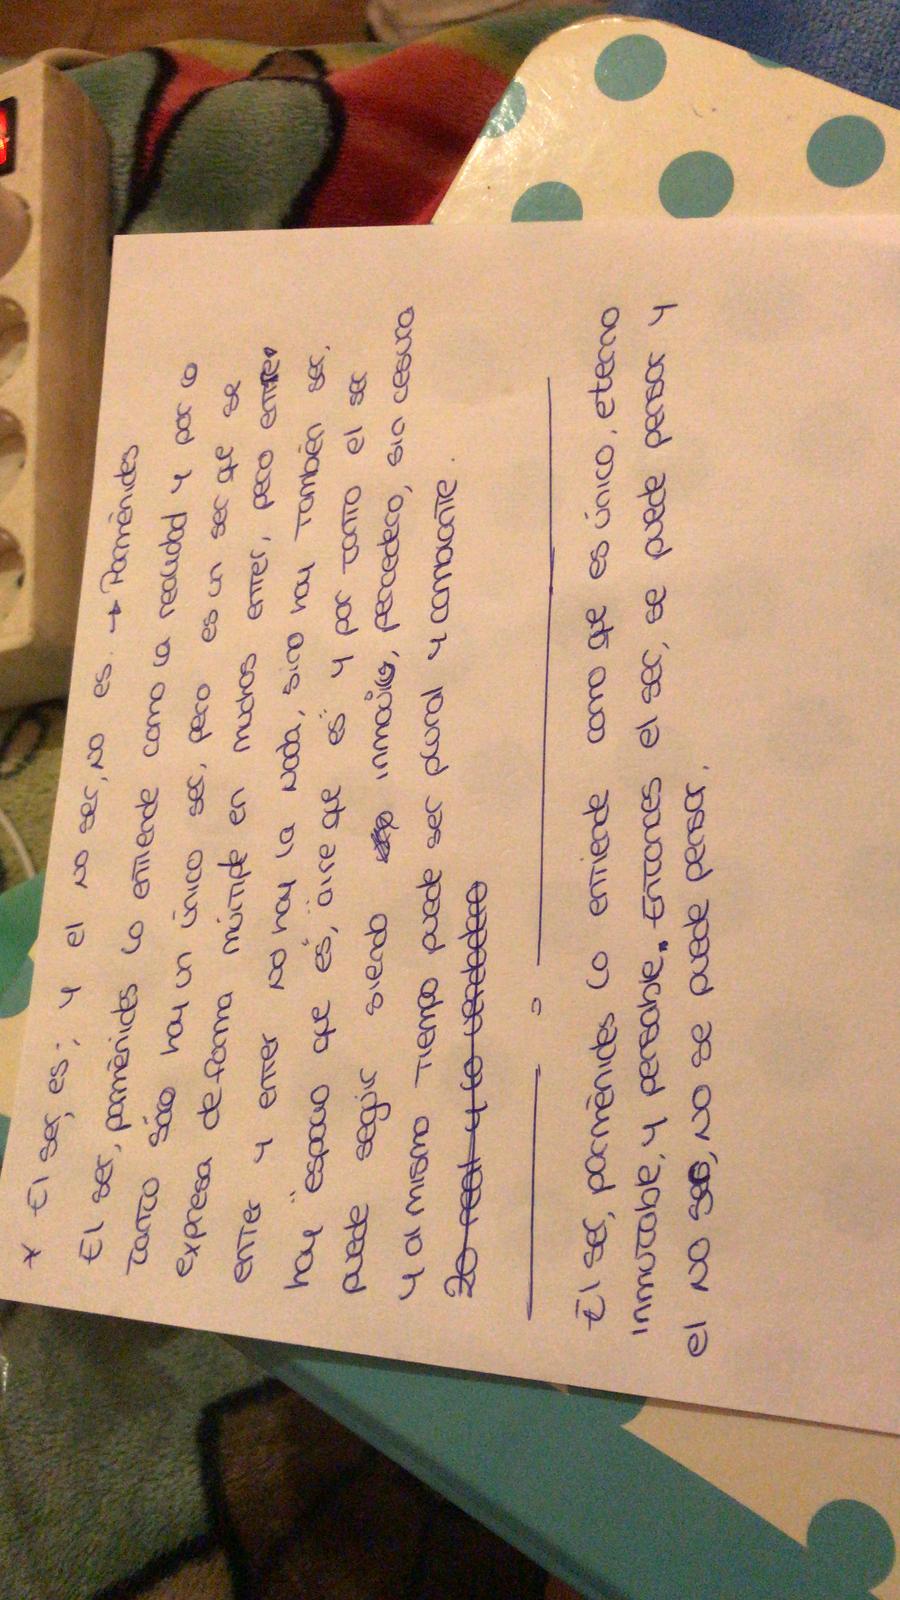 * El ser, es; y el no ser, no es. → Parménides
El ser, parménides lo entiende como la realidad y por lo
tanto sólo hay un único ser, pero es un ser que se
expresa de forma múltiple en muchos enter, pero entre
enter y enter no hay la nada, sino hay también ser,
hay "espacio que es", "aire que es" y por tanto el ser
puede seguir siendo inmovil, percedero, sin cesura
y al mismo tiempo puede ser plural y cambiante.
Lo real y lo verdedero
El ser, parménides lo entiende como que es único, eterno
inmutable, y pensable. Entonces el ser, se puede pensar y
el no ser, no se puede pensar.